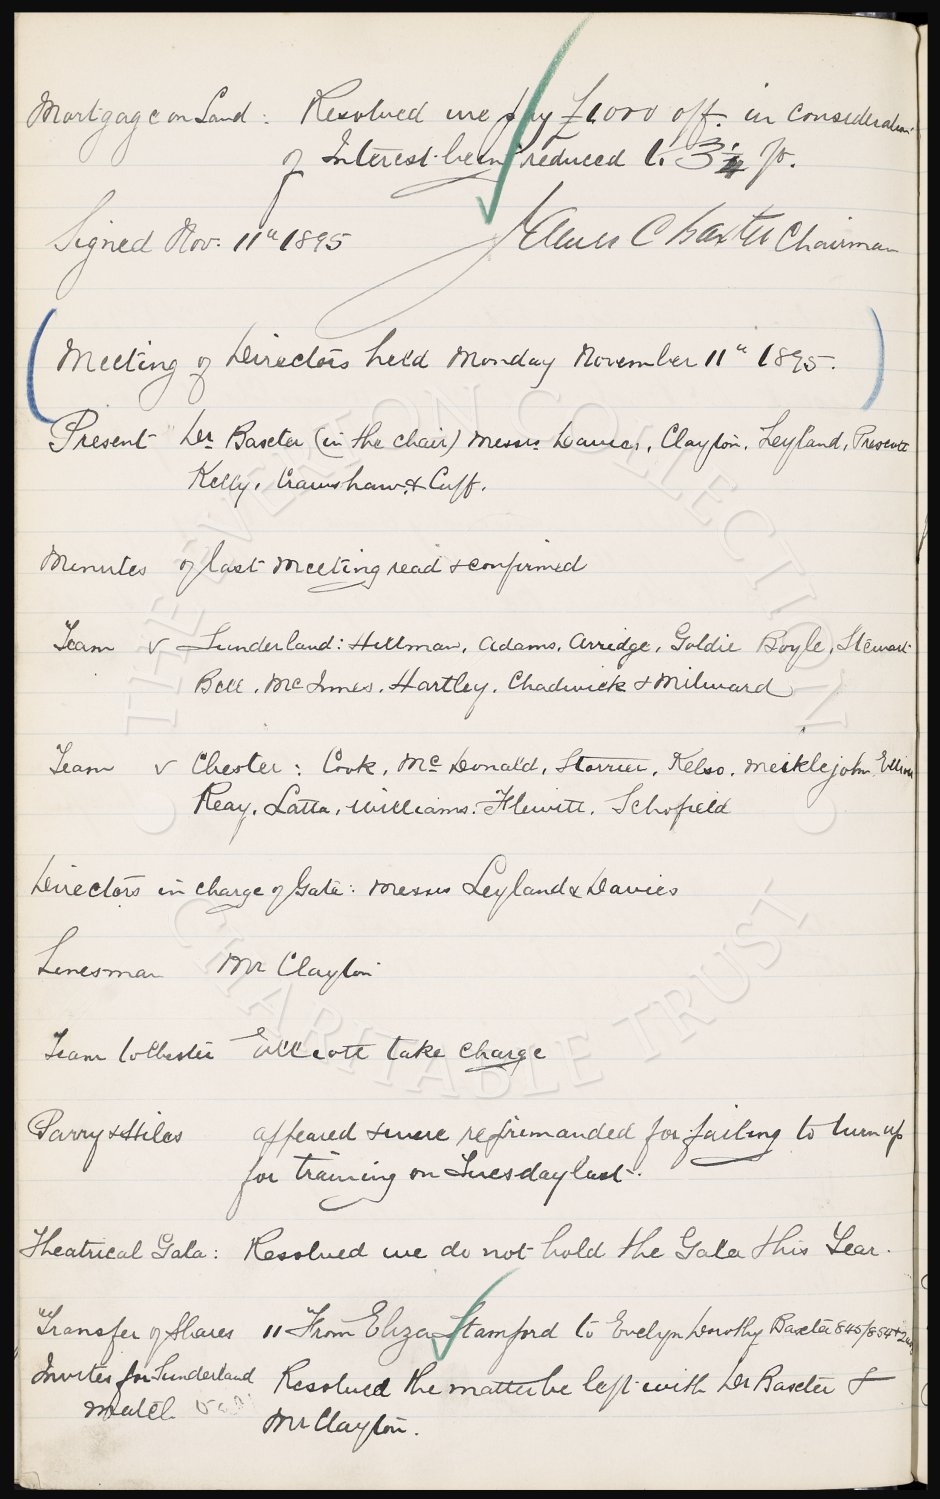 Mortgage on Land : Resolved we pay £1000 off. in consideration
of Interest being reduced to 3¼ %.
Signed Nov. 11th 1895 James C Baxter Chairman
Meeting of Directors held Monday November 11th 1895.
Present Dr Baxter (in the chair) Messrs Davies, Clayton, Leyland, Prescott
Kelly, Cramshaw & Cuff.
Minutes of last meeting read & confirmed
Team v Sunderland : Hillman, Adams, Arridge, Goldie Boyle, Stewart
Bell, McInnes, Hartley, Chadwick & Milward
Team v Chester : Cook, McDonald, Storrier, Kelso, Meiklejohn, Elliott
Reay, Latta, Williams, Flewitt, Schofield
Directors in charge of Gate : Messrs Leyland & Davies
Linesman Mr Clayton
Team to Chester Ellcott take charge
Parry & Hiles appeared & were reprimanded for failing to turn up
for training on Tuesday last.
Theatrical Gala : Resolved we do not hold the Gala this Year.
Transfer of Shares 11 From Eliza Stamford to Evelyn Dorothy Baxter 845/854 &
Invites for Sunderland Resolved the matter be left with Dr Baxter &
match
Mr Clayton.
THE EVERTON COLLECTION
CHARITABLE TRUST